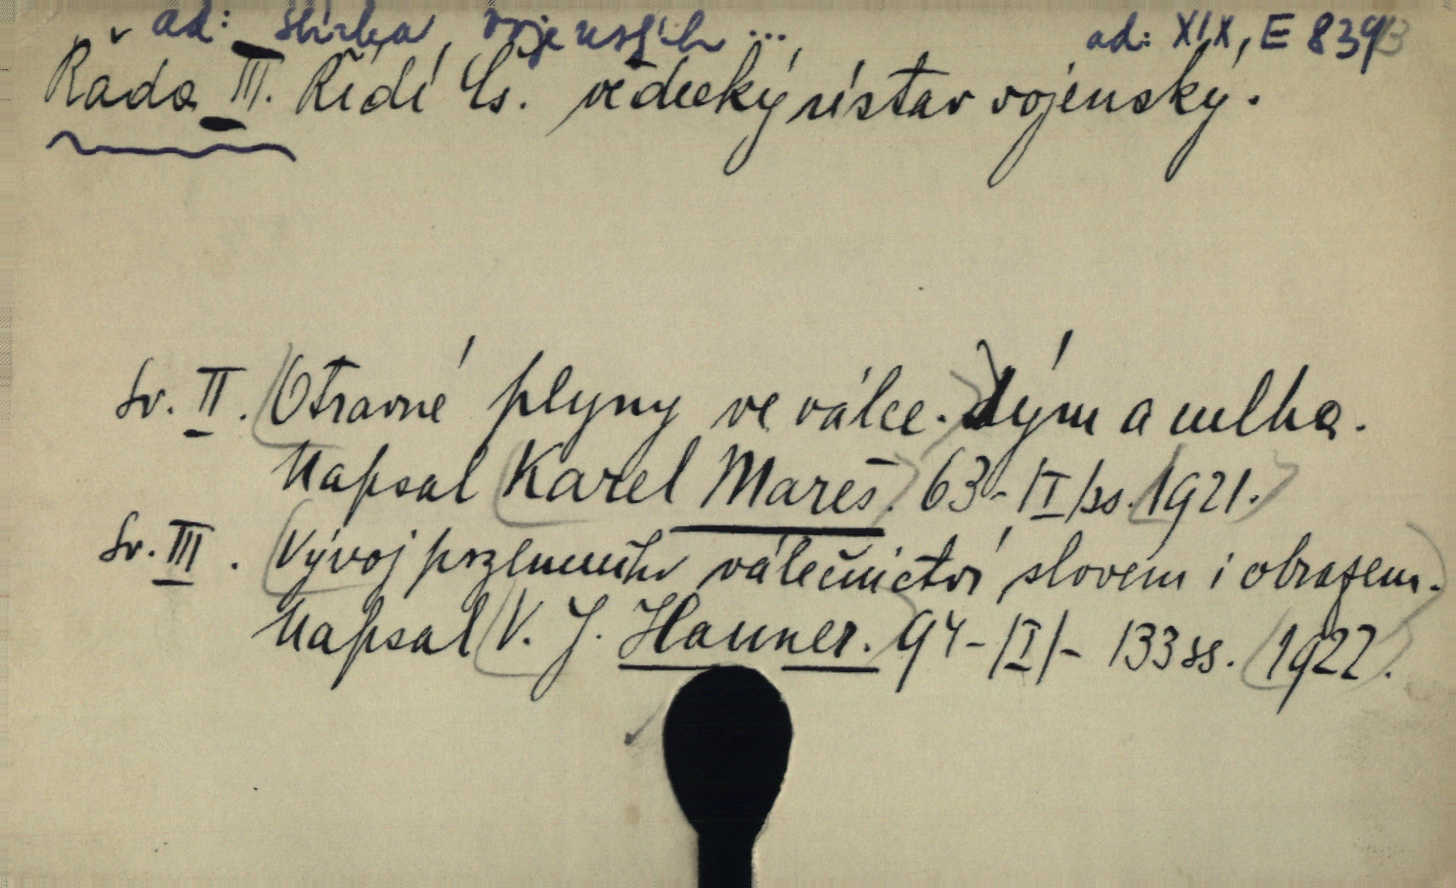 ad: Sbírka vojenských... ad: XIX, E 839
Řada III. Řídí Čs. vědecký ústav vojenský.
Sv. II. Otravné plyny ve válce. Dým a mlha.
Napsal Karel Mareš. 63-|I|ss. 1921.
Sv. III. Vývoj pozemního válečnictví slovem i obrazem.
Napsal V. J. Hauner. 94-|I|- 133 ss. 1922.